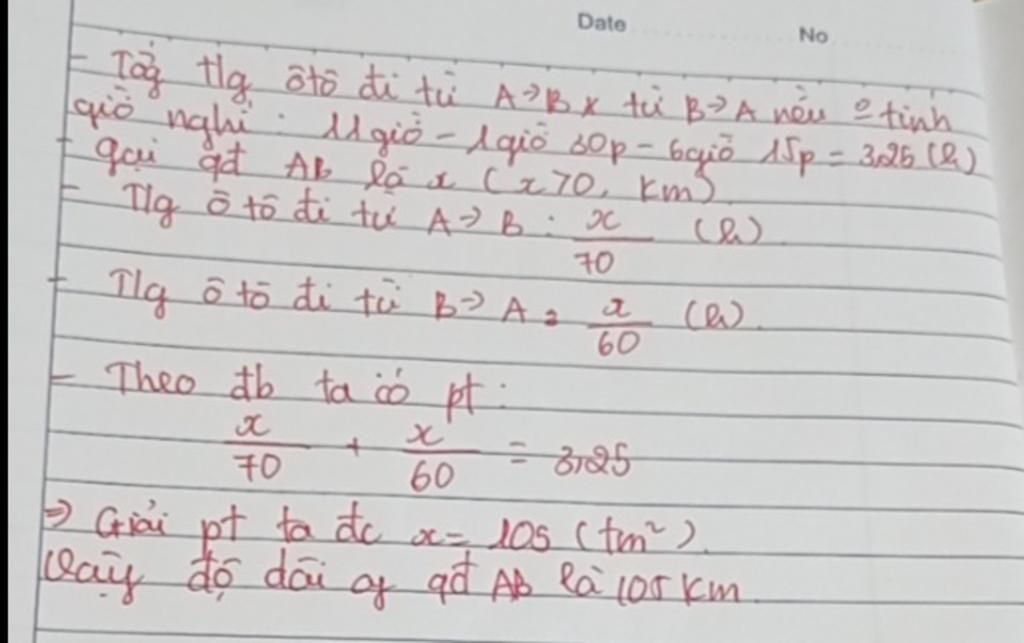 Date No
- Tổg tlg ôtô đi từ A→B x từ B→A nếu o tính
giờ nghỉ : 11giờ - 1giờ 30p - 6giờ 15p = 3,25 (h)
- gọi qđ AB là x (x>0, km)
- Tlg ô tô đi từ A→B : x/70 (h)
- Tlg ô tô đi từ B→A = x/60 (h).
- Theo đb ta có pt :
x/70 + x/60 = 3,25
⇒ Giải pt ta đc x = 105 (tm²).
Vậy độ dài qđ AB là 105 km.